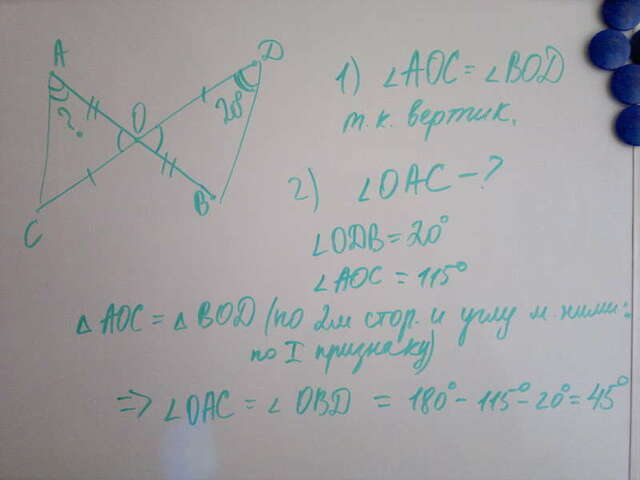 A
D
O
?
20°
B
C
1) ∠AOC = ∠BOD
т.к. вертик.
2) ∠OAC - ?
∠ODB = 20°
∠AOC = 115°
△ AOC = △ BOD (по 2м стор. и углу м. ними:
по I признаку)
=> ∠OAC = ∠OBD = 180° - 115° - 20° = 45°